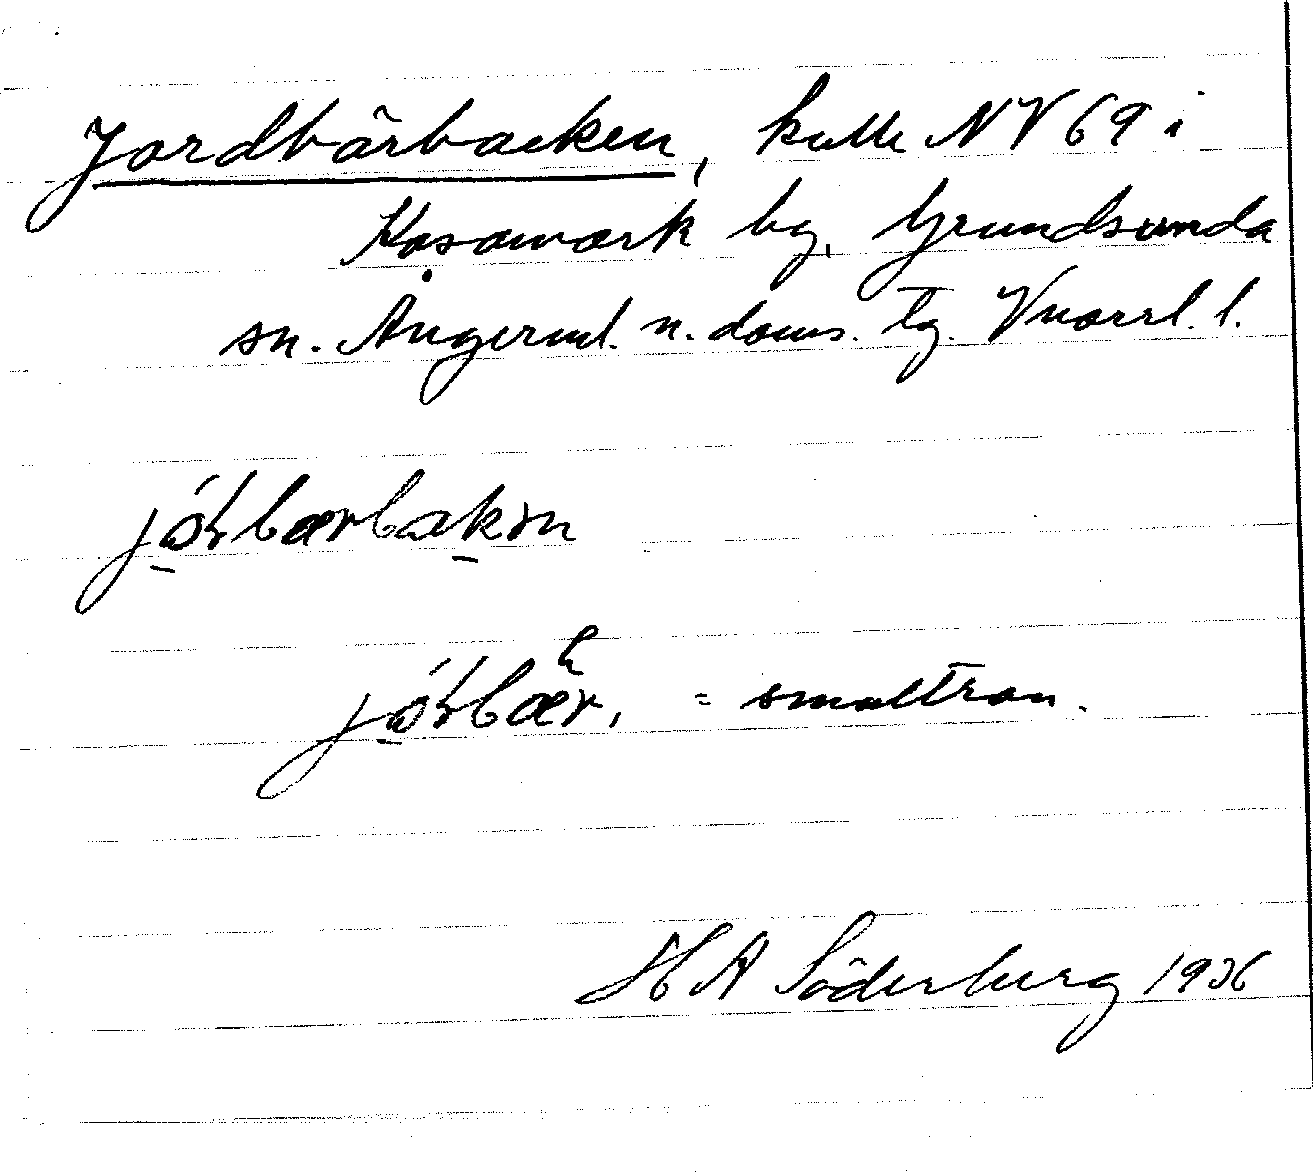 Jordbärbacken, kulle NV 69 i
Kasamark by, Grundsunda
sn. Ångerml. n. doms. tg. Vnorrl. l.
jó̠rbærbak̠ən
jó̠rbær, = smultron.
H A Söderberg 1936